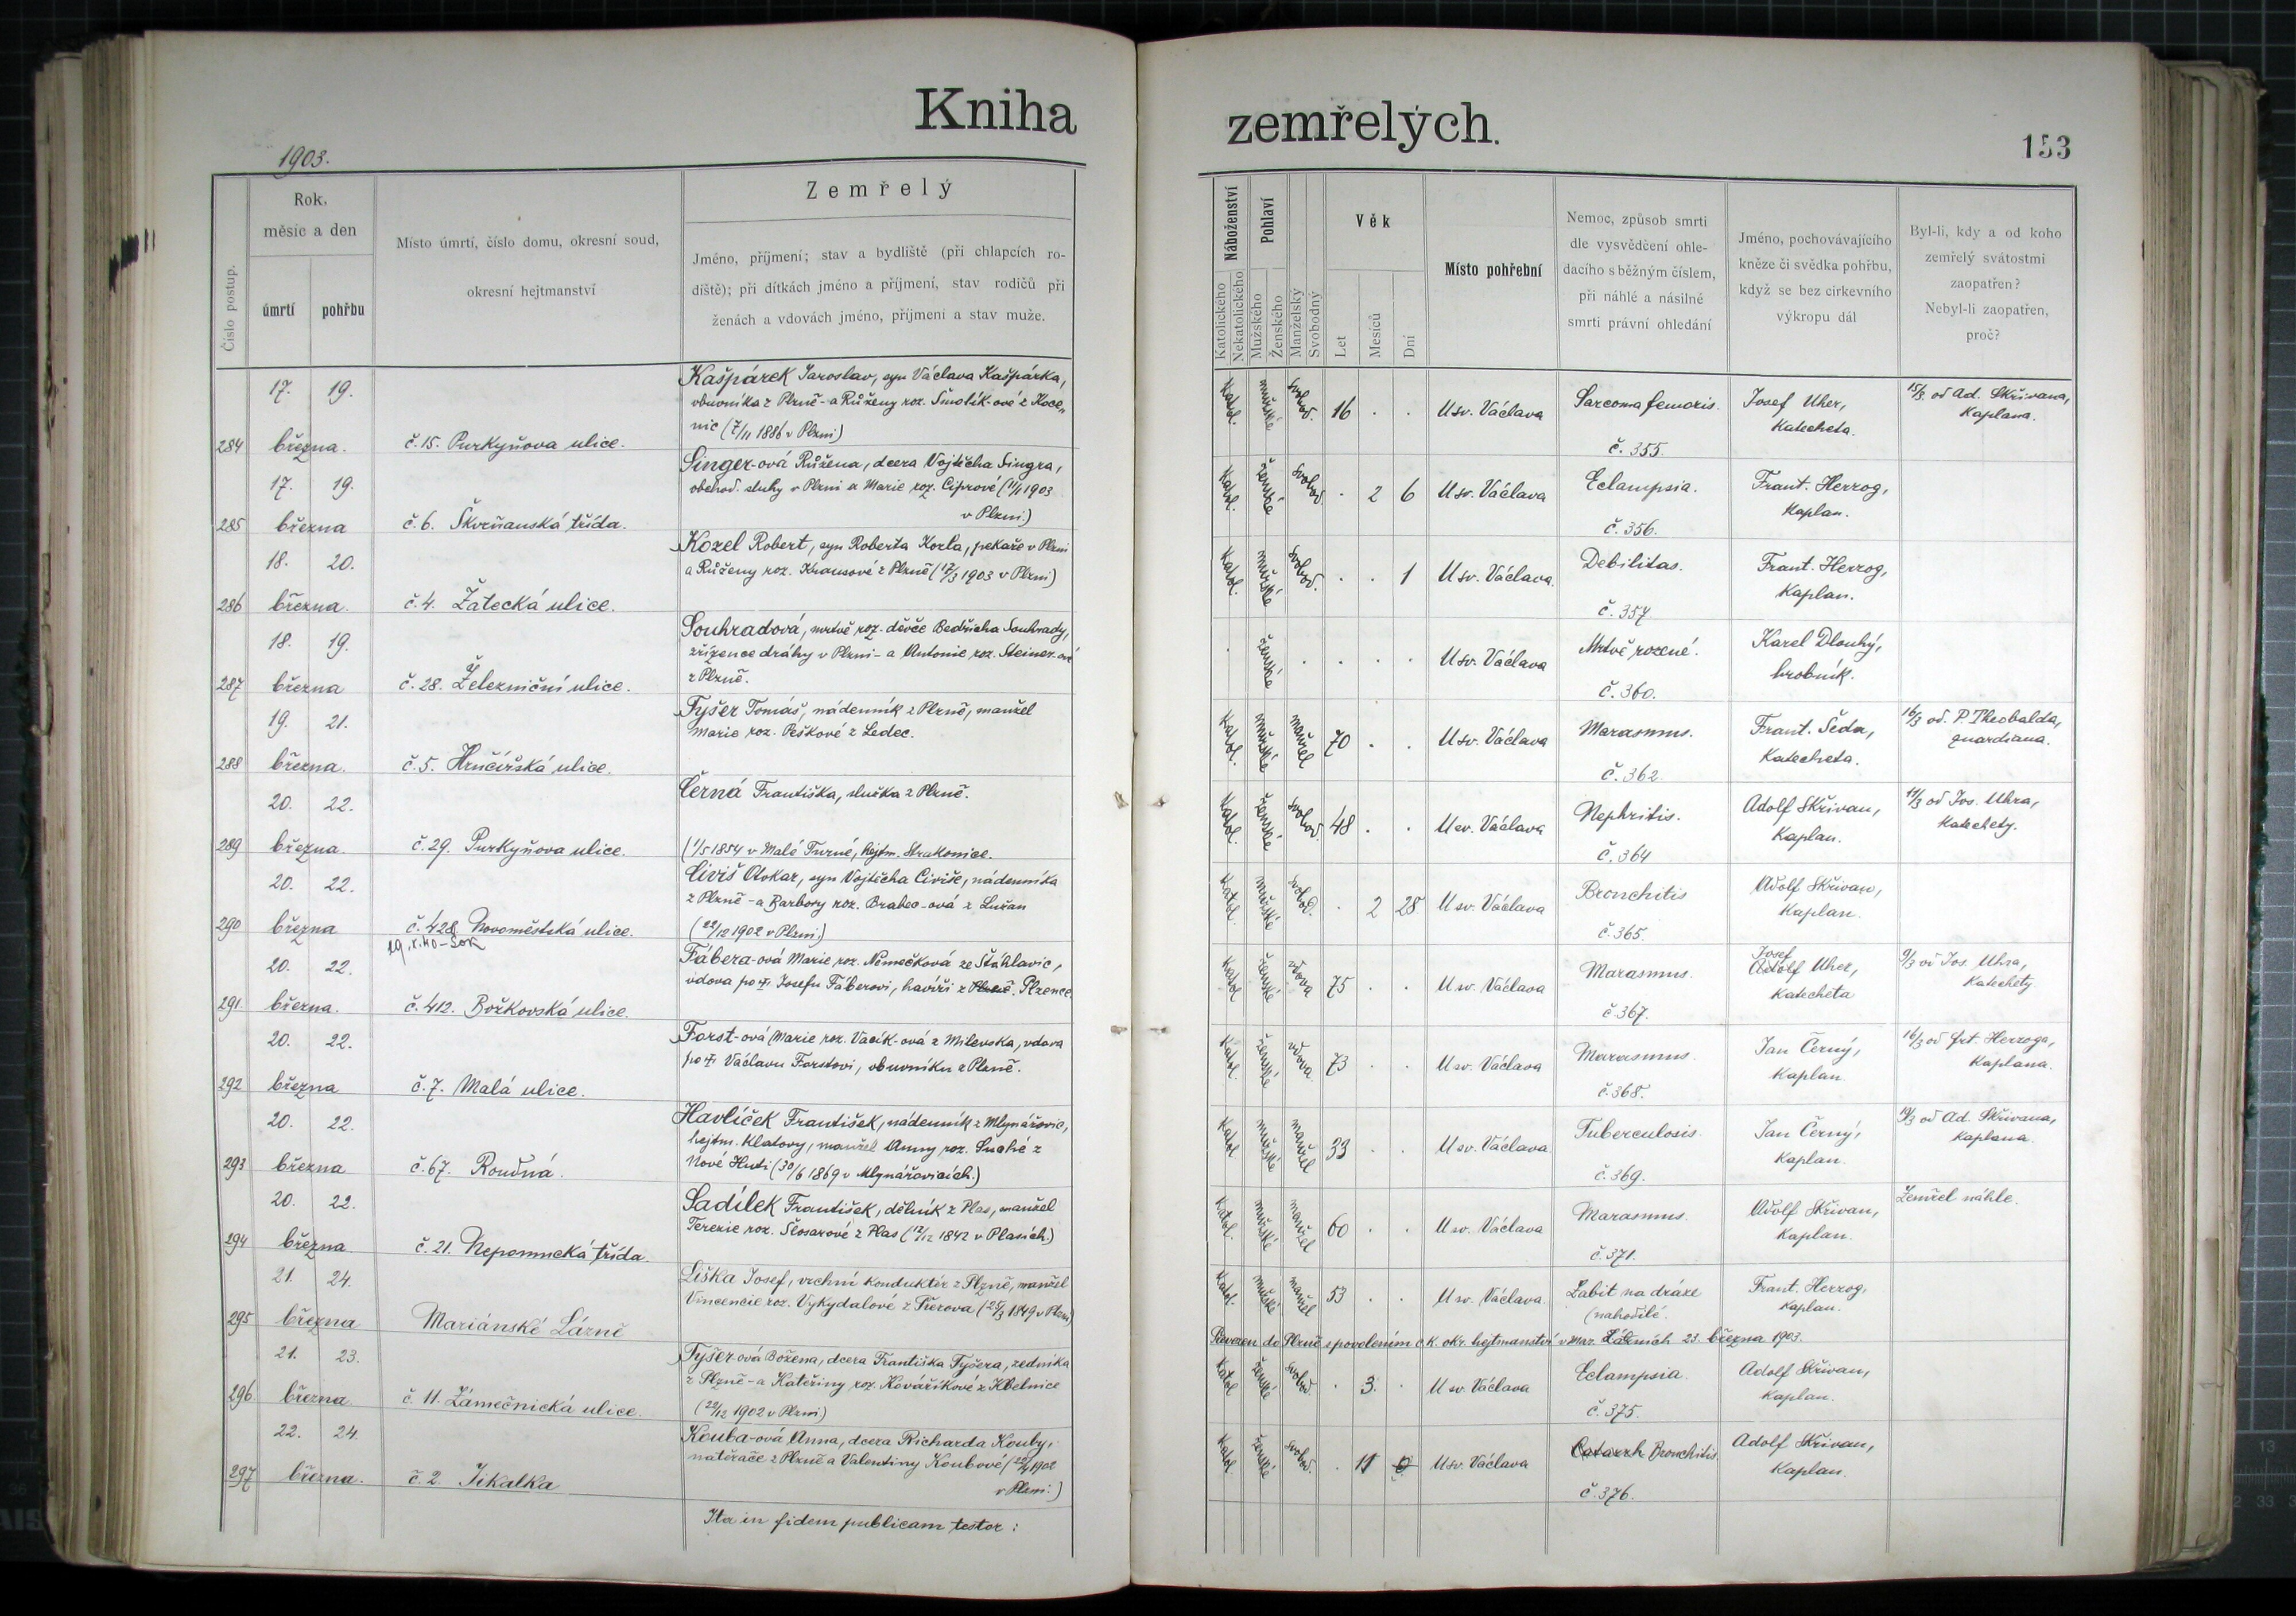 Kniha
zemřelých.
153
1903.
Číslo postup.
Rok,
měsíc a den
úmrtí
pohřbu
Místo úmrtí, číslo domu, okresní soud,
okresní hejtmanství
Zemřelý
Jméno, příjmení; stav a bydliště (při chlapcích ro-
diště); při dítkách jméno a příjmení, stav rodičů při
ženách a vdovách jméno, příjmení a stav muže.
Náboženství
Katolického
Nekatolického
Pohlaví
Mužského
Ženského
Manželský
Svobodný
Věk
Let
Měsíců
Dní
Místo pohřební
Nemoc, způsob smrti
dle vysvědčení ohle-
dacího s běžným číslem,
při náhlé a násilné
smrti právní ohledání
Jméno, pochovávajícího
kněze či svědka pohřbu,
když se bez církevního
výkropu dál
Byl-li, kdy a od koho
zemřelý svátostmi
zaopatřen?
Nebyl-li zaopatřen,
proč?
284 17. 19. března. č. 15. Purkyňova ulice.
Kašpárek Jaroslav, syn Václava Kašpárka,
obuvníka z Plzně - a Růženy roz. Smolík-ové z Koce„
nic (7/11 1886 v Plzni)
Katol. mužské svobod. 16 . . U sv. Václava
Sarcoma femoris.
č. 355.
Josef Uher,
Katecheta.
15/3 od Ad. Skřivana,
Kaplana.
285 17. 19. března č. 6. Skvrňanská třída.
Singer-ová Růžena, dcera Vojtěcha Singra,
obchod. sluhy v Plzni a Marie roz. Ciprové (11/1 1903
v Plzni)
Katol. ženské svobod. . 2 6 U sv. Václava
Eclampsia.
č. 356.
Frant. Herzog,
Kaplan.
286 18. 20. března. č. 4. Žatecká ulice.
Kozel Robert, syn Roberta Kozla, pekaře v Plzni
a Růženy roz. Krausové z Plzně (17/3 1903 v Plzni)
Katol. mužské svobod. . . 1 U sv. Václava.
Debilitas.
č. 357
Frant. Herzog,
Kaplan.
287 18. 19. března č. 28. Železniční ulice.
Souhradová, mrtvě roz. děvče Bedřicha Souhrady,
zřízence dráhy v Plzni - a Antonie roz. Steiner-ové
z Plzně.
ženské . . . . U sv. Václava
Mrtvě rozené.
č. 360.
Karel Dlouhý,
hrobník.
288 19. 21. března. č. 5. Hrnčířská ulice.
Tyšer Tomáš, nádenník z Plzně, manžel
Marie roz. Peškové z Ledec.
Katol. mužské manžel 70 . . U sv. Václava
Marasmus.
č. 362
Frant. Šeda,
Katecheta.
16/3 od. P. Theobalda,
guardiana.
289 20. 22. března. č. 29. Purkyňova ulice.
Černá Františka, služka z Plzně.
(1/5 1854 v Malé Turné, hejtm. Strakonice.
Katol. ženské svobod. 48 . . U sv. Václava
Nephritis.
č. 364
Adolf Skřivan,
Kaplan.
11/3 od Jos. Uhra,
Katechety.
290 20. 22. března č. 428 Novoměstská ulice.
Civiš Otokar, syn Vojtěcha Civiše, nádenníka
z Plzně - a Barbory roz. Brabec-ová z Lužan
(22/12 1902 v Plzni)
Katol. mužské svobod. . 2 28 U sv. Václava
Bronchitis
č. 365.
Adolf Skřivan,
Kaplan.
291. 20. 22. března. č. 412. Božkovská ulice.
Fábera-ová Marie roz. Němečková ze Šťáhlavic,
vdova po † Josefu Fáberovi, havíři z Plzně. Plzence.
Katol ženské vdova 75 . . U sv. Václava
Marasmus.
č. 367.
Josef
Adolf Uher,
Katecheta
9/3 od Jos. Uhra,
Katechety
292 20. 22. března č. 7. Malá ulice.
Forst-ová Marie roz. Vacík-ová z Milevska, vdova
po † Václavu Forstovi, obuvníku z Plzně.
Katol. ženské vdova 73 . . U sv. Václava
Marasmus.
č. 368.
Jan Černý,
Kaplan.
16/3 od Frt. Herzoga,
Kaplana.
293 20. 22. března č. 67. Roudná.
Havlíček František, nádenník z Mlynářovic,
hejtm. Klatovy, manžel Anny roz. Suché z
Nové Huti (30/6 1869 v Mlynářovicích.)
Katol mužské manžel 33 . . U sv. Václava
Tuberculosis.
č. 369.
Jan Černý,
Kaplan.
19/3 od Ad. Skřivana,
Kaplana.
294 20. 22. března č. 21. Nepomucká třída.
Sadílek František, dělník z Plas, manžel
Terezie roz. Slosarové z Plas (17/12 1842 v Plasích.)
Katol. mužské manžel 60 . . U sv. Václava
Marasmus.
č. 371.
Adolf Skřivan,
Kaplan.
Zemřel náhle.
295 21. 24. března Mariánské Lázně
Liška Josef, vrchní konduktér z Plzně, manžel
Vincencie roz. Vykydalové z Přerova (25/3 1849 v Plzni)
Katol. mužské manžel 53 . . U sv. Václava
Zabit na dráze
(nahodilé.
Frant. Herzog,
Kaplan.
Převezen do Plzně s povolením c. k. okr. hejtmanství v Mar. Lázních 23. března 1903.
296. 21. 23. března č. 11. Zámečnická ulice.
Tyšer-ová Božena, dcera Františka Tyšera, zedníka
z Plzně - a Kateřiny roz. Kovaříkové z Kbelnice
(22/12 1902 v Plzni)
Katol ženské svobod . 3. . U sv. Václava
Eclampsia.
č. 375.
Adolf Skřivan,
Kaplan.
297 22. 24. března. č. 2. Jikalka
Kouba-ová Anna, dcera Richarda Kouby,
natěrače z Plzně a Valentiny Koubové 1902
v Plzni.)
Katol ženské svobod. . 11 U sv. Václava
Catarrh Bronchitis.
č. 376.
Adolf Skřivan,
Kaplan.
Ita in fidem publicam testor: